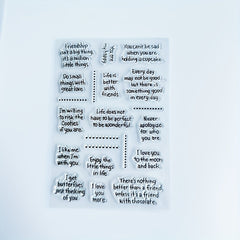 Friendship
isn't a big thing,
it's a million
little things.
You can't be sad
when you are
holding a cupcake.
Do small
things with
great love.
Life is
better
with
friends.
Every day
may not be good
but there is
something good
in every day.
I'm willing
to risk the
Cooties
if you are.
Life does not
have to be perfect
to be wonderful.
Never
apologize
for who
you are.
I like me
when I'm
with you.
Enjoy
the little
things
in life
I love you
to the moon
and back.
I get
butterflies
just thinking
of you.
I love
you
more.
There's nothing
better than a friend,
unless it's a friend
with chocolate.